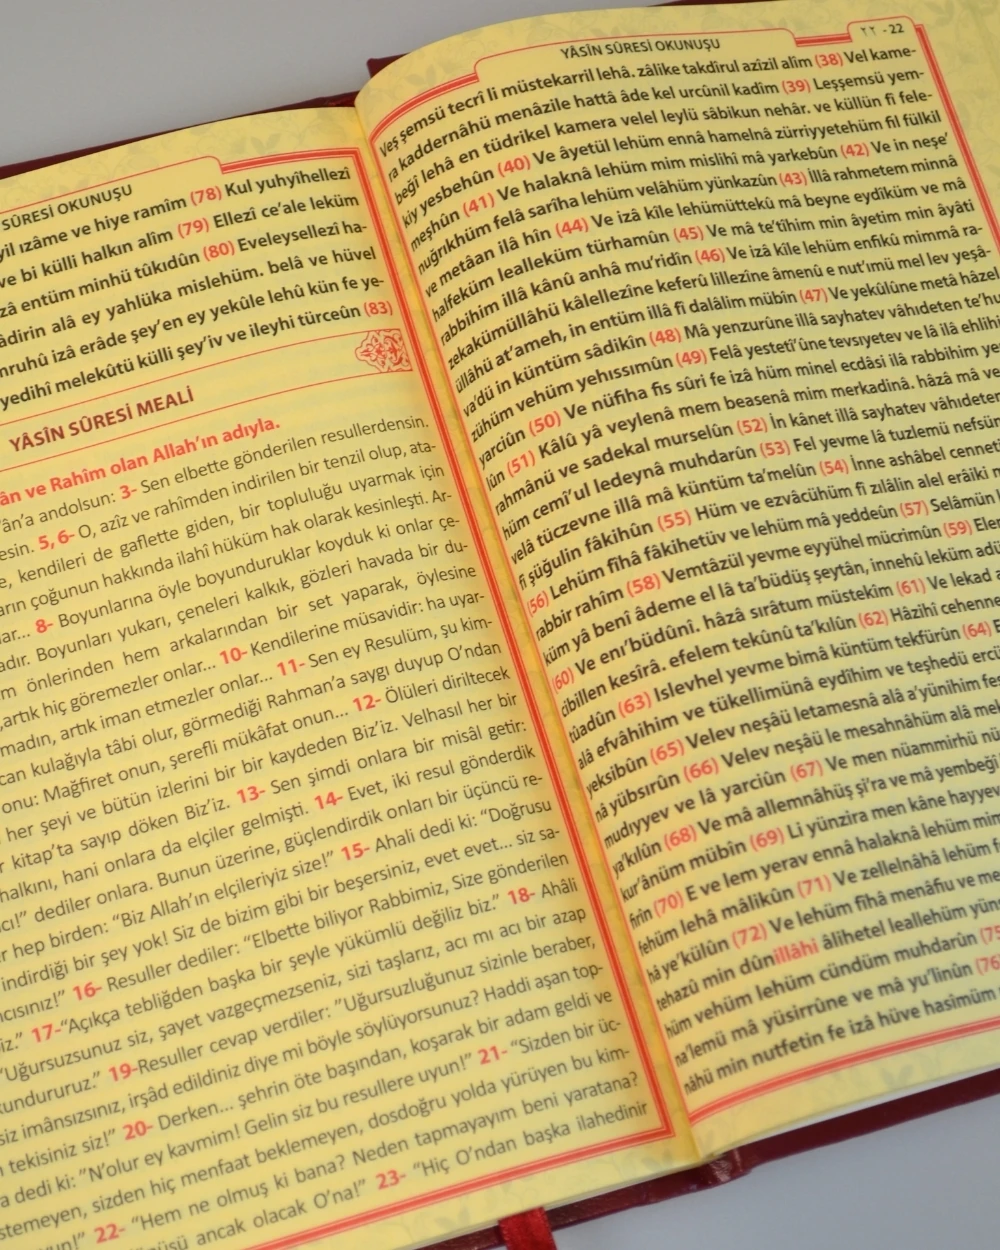 SÛRESİ OKUNUŞU
yil ızâme ve hiye ramîm (78) Kul yuhyîhellezî
ve bi külli halkın alîm (79) Ellezî ce'ale leküm
zâ entüm minhü tûkıdûn (80) Eveleysellezî ha-
âdirin alâ ey yahlüka mislehüm. belâ ve hüvel
mruhû izâ erâde şey'en ey yekûle lehû kün fe ye-
yedihî melekûtü külli şey'iv ve ileyhi türceûn (83)
YÂSÎN SÛRESİ MEALİ
ân ve Rahîm olan Allah'ın adıyla.
'ân'a andolsun: 3- Sen elbette gönderilen resullerdensin.
esin. 5, 6- O, azîz ve rahîmden indirilen bir tenzil olup, ata-
e, kendileri de gaflette giden, bir topluluğu uyarmak için
arın çoğunun hakkında ilahî hüküm hak olarak kesinleşti. Ar-
lar... 8- Boyunlarına öyle boyunduruklar koyduk ki onlar çe-
adır. Boyunları yukarı, çeneleri kalkık, gözleri havada bir du-
m önlerinden hem arkalarından bir set yaparak, öylesine
artık hiç göremezler onlar... 10- Kendilerine müsavidir: ha uyar-
madın, artık iman etmezler onlar... 11- Sen ey Resulüm, şu kim-
can kulağıyla tâbi olur, görmediği Rahman'a saygı duyup O'ndan
onu: Mağfiret onun, şerefli mükâfat onun... 12- Ölüleri diriltecek
her şeyi ve bütün izlerini bir bir kaydeden Biz'iz. Velhasıl her bir
r kitap'ta sayıp döken Biz'iz. 13- Sen şimdi onlara bir misâl getir:
halkını, hani onlara da elçiler gelmişti. 14- Evet, iki resul gönderdik
cı!" dediler onlara. Bunun üzerine, güçlendirdik onları bir üçüncü re-
r hep birden: "Biz Allah'ın elçileriyiz size!" 15- Ahali dedi ki: "Doğrusu
indirdiği bir şey yok! Siz de bizim gibi bir beşersiniz, evet evet... siz sa-
ıcısınız!" 16- Resuller dediler: "Elbette biliyor Rabbimiz, Size gönderilen
iz." 17-"Açıkça tebliğden başka bir şeyle yükümlü değiliz biz." 18- Ahâli
"Uğursuzsunuz siz, şayet vazgeçmezseniz, sizi taşlarız, acı mı acı bir azap
kundururuz." 19-Resuller cevap verdiler: "Uğursuzluğunuz sizinle beraber,
siz imânsızsınız, irşâd edildiniz diye mi böyle söylüyorsunuz? Haddi aşan top-
tekisiniz siz!" 20- Derken... şehrin öte başından, koşarak bir adam geldi ve
a dedi ki: "N'olur ey kavmim! Gelin siz bu resullere uyun!" 21- "Sizden bir üc-
stemeyen, sizden hiç menfaat beklemeyen, dosdoğru yolda yürüyen bu kim-
yun!" 22- "Hem ne olmuş ki bana? Neden tapmayayım beni yaratana?
ancak olacak O'na!" 23- "Hiç O'ndan başka ilahedinir
YÂSÎN SÛRESİ OKUNUŞU
٢٢ - 22
Veş şemsü tecrî li müstekarril lehâ. zâlike takdîrul azîzil alîm (38) Vel kame-
ra kaddernâhü menâzile hattâ âde kel urcûnil kadîm (39) Leşşemsü yem-
beğî lehâ en tüdrikel kamera velel leylü sâbikun nehâr. ve küllün fî fele-
kiy yesbehûn (40) Ve âyetül lehüm ennâ hamelnâ zürriyyetehüm fil fülkil
meşhûn (41) Ve halaknâ lehüm mim mislihî mâ yarkebûn (42) Ve in neşe'
nuğrıkhüm felâ sarîha lehüm velâhüm yünkazûn (43) İllâ rahmetem minnâ
ve metâan ilâ hîn (44) Ve izâ kîle lehümüttekû mâ beyne eydîküm ve mâ
halfeküm lealleküm türhamûn (45) Ve mâ te'tîhim min âyetim min âyâti
rabbihim illâ kânû anhâ mu'ridîn (46) Ve izâ kîle lehüm enfikû mimmâ ra-
zekakümüllâhü kâlellezîne keferû lillezîne âmenû e nut'ımü mel lev yeşâ-
üllâhü at'ameh, in entüm illâ fî dalâlim mübîn (47) Ve yekûlûne metâ hâzel
va'dü in küntüm sâdikîn (48) Mâ yenzurûne illâ sayhatev vâhıdeten te'hu
zühüm vehüm yehıssımûn (49) Felâ yestetî'ûne tevsıyetev ve lâ ilâ ehlihi
yarciûn (50) Ve nüfiha fis sûri fe izâ hüm minel ecdâsi ilâ rabbihim ye
lûn (51) Kâlû yâ veylenâ mem beasenâ mim merkadinâ. hâzâ mâ ve
rahmânü ve sadekal murselûn (52) İn kânet illâ sayhatev vâhıdeten
hüm cemî'ul ledeynâ muhdarûn (53) Fel yevme lâ tuzlemü nefsün
velâ tüczevne illâ mâ küntüm ta'melûn (54) İnne ashâbel cenneti
fî şüğulin fâkihûn (55) Hüm ve ezvâcühüm fî zılâlin alel erâiki m
(56) Lehüm fîhâ fâkihetüv ve lehüm mâ yeddeûn (57) Selâmün
rabbir rahîm (58) Vemtâzül yevme eyyühel mücrimûn (59) Elem
küm yâ benî âdeme el lâ ta'büdüş şeytân, innehû leküm adü
(60) Ve enı'büdûnî. hâzâ sırâtum müstekîm (61) Ve lekad a
cibillen kesîrâ. efelem tekûnû ta'kılûn (62) Hâzihî cehenne
tûadûn (63) Islevhel yevme bimâ küntüm tekfürûn (64) E
alâ efvâhihim ve tükellimünâ eydîhim ve teşhedü ercü
yeksibûn (65) Velev neşâü letamesnâ alâ a'yünihim fes
nâ yübsırûn (66) Velev neşâü le mesahnâhüm alâ mek
mudıyyev ve lâ yarciûn (67) Ve men nüammirhü nü
ya'kılûn (68) Ve mâ allemnâhüş şi'ra ve mâ yembeğî
kur'ânüm mübîn (69) Li yünzira men kâne hayyev
firîn (70) E ve lem yerav ennâ halaknâ lehüm mim
fehüm lehâ mâlikûn (71) Ve zellelnâhâ lehüm f
hâ ye'külûn (72) Ve lehüm fîhâ menâfiu ve me
tehazû min dûnillâhi âlihetel leallehüm yüns
hüm vehüm lehüm cündüm muhdarûn (75
na'lemü mâ yüsirrûne ve mâ yu'linûn (76
nâhü min nutfetin fe izâ hüve hasîmüm